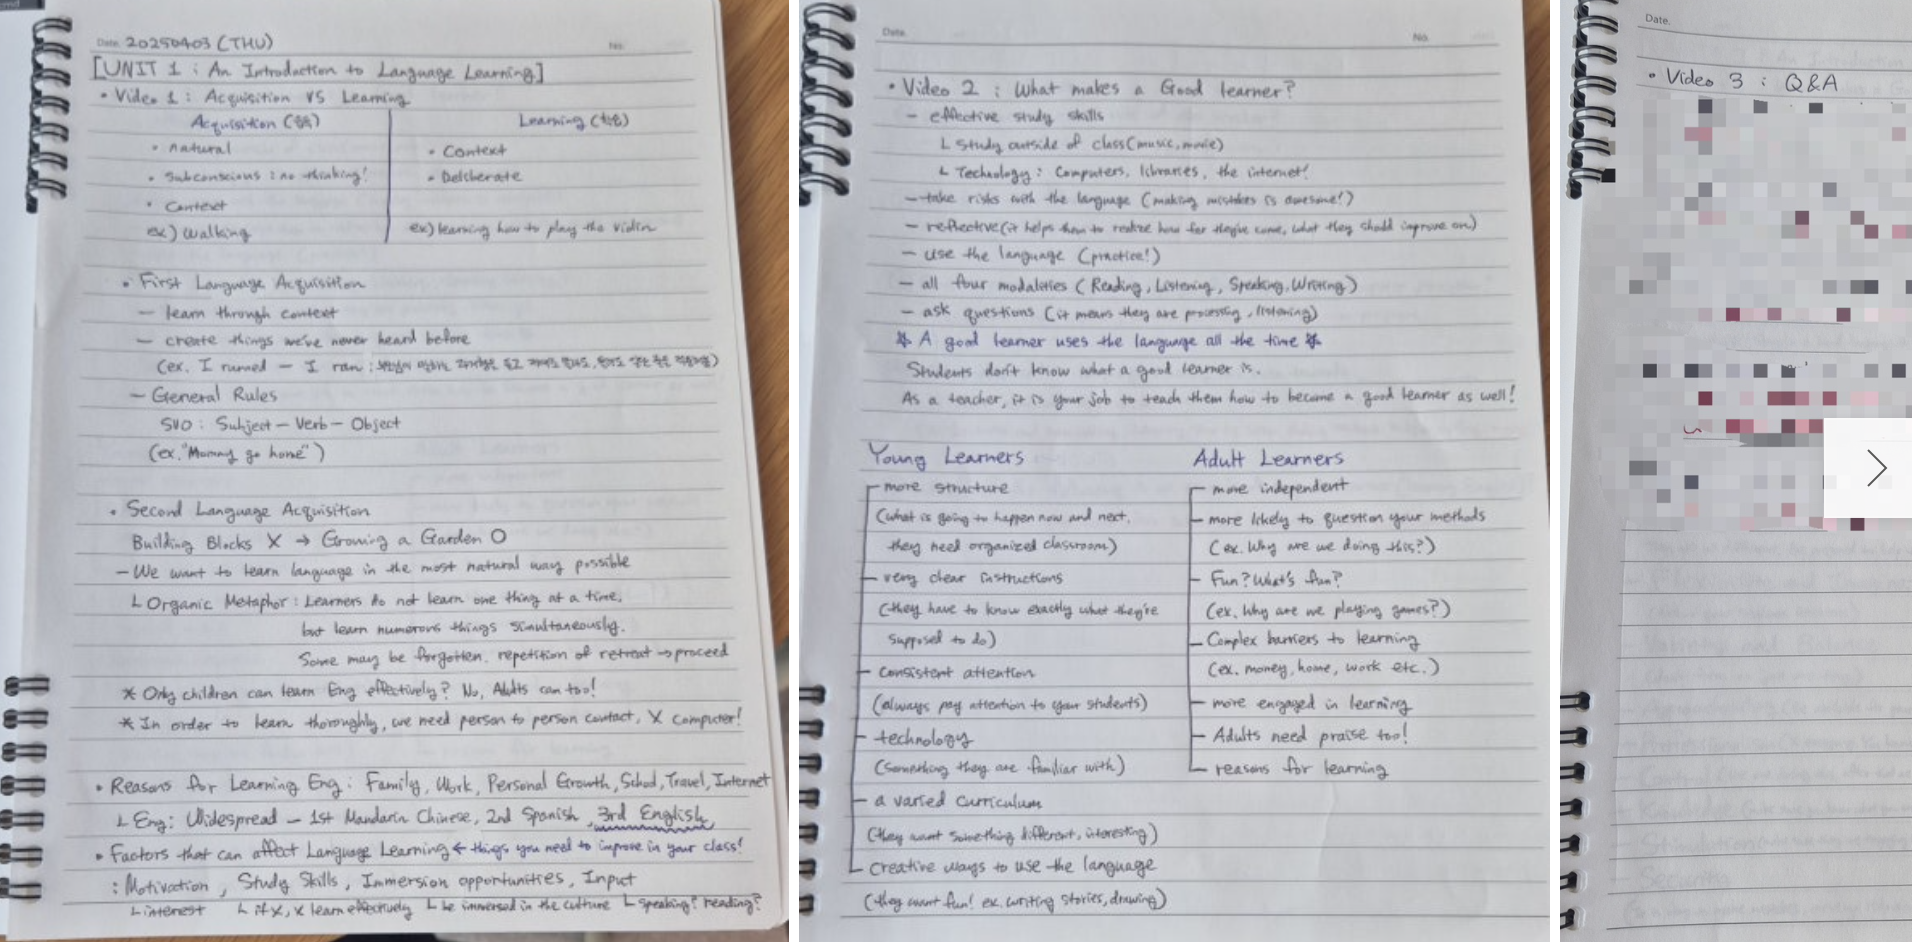 Date. 20250403 (THU)
No.
[UNIT 1 : An Introduction to Language Learning]
• Video 1 : Acquisition VS Learning
Acquisition (습득)
• natural
• Subconscious : no thinking!
• Context
ex) walking
Learning (학습)
• Context
• Deliberate
ex) learning how to play the violin
• First Language Acquisition
— learn through context
— create things we've never heard before
(ex. I runned — I ran :
— General Rules
SVO : Subject — Verb — Object
(ex. "Mommy go home")
• Second Language Acquisition
Building Blocks X → Growing a Garden O
— We want to learn language in the most natural way possible
└ Organic Metaphor : Learners do not learn one thing at a time,
but learn numerous things simultaneously.
Some may be forgotten. repetition of retreat → proceed
* Only children can learn Eng effectively? No, Adults can too!
* In order to learn thoroughly, we need person to person contact, X computer!
• Reasons for Learning Eng : Family, Work, Personal Growth, School, Travel, Internet
└ Eng : Widespread — 1st Mandarin Chinese, 2nd Spanish, 3rd English
• Factors that can affect Language Learning ← things you need to improve in your class!
: Motivation, Study Skills, Immersion opportunities, Input
└ interest └ if X, X learn effectively └ be immersed in the culture └ speaking? reading?
Date.
No.
• Video 2 : What makes a Good learner?
— effective study skills
└ Study outside of class (music, movie)
└ Technology : Computers, libraries, the internet!
— take risks with the language (making mistakes is awesome!)
— reflective (it helps them to realize how far they've come, what they should improve on)
— use the language (practice!)
— all four modalities (Reading, Listening, Speaking, Writing)
— ask questions (it means they are processing, listening)
* A good learner uses the language all the time *
Students don't know what a good learner is.
As a teacher, it is your job to teach them how to become a good learner as well!
Young Learners
— more structure
(what is going to happen now and next,
they need organized classroom)
— very clear instructions
(they have to know exactly what they're
supposed to do)
— consistent attention
(always pay attention to your students)
— technology
(something they are familiar with)
— a varied curriculum
(they want something different, interesting)
└ creative ways to use the language
(they want fun! ex. writing stories, drawing)
Adult Learners
— more independent
— more likely to question your methods
(ex. Why are we doing this?)
— Fun? What's fun?
(ex. Why are we playing games?)
— Complex barriers to learning
(ex. money, home, work etc.)
— more engaged in learning
— Adults need praise too!
└ reasons for learning
Date.
• Video 3 : Q&A